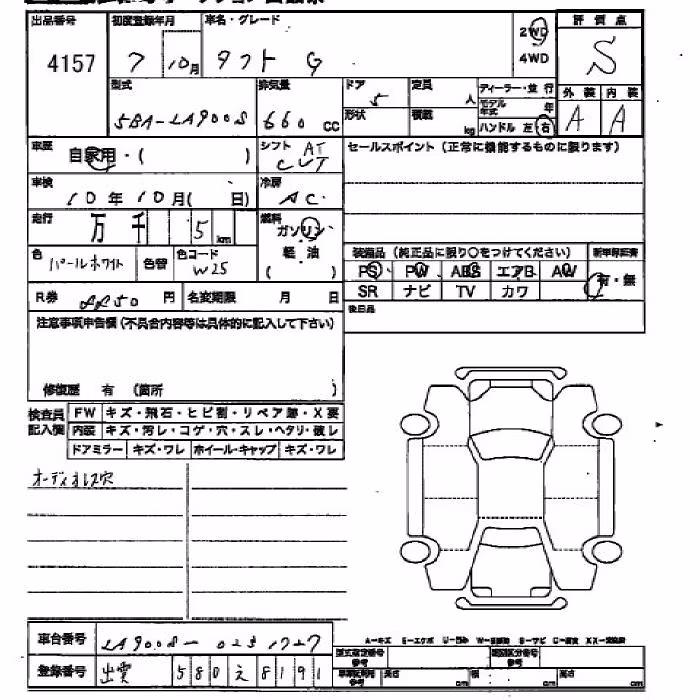 出品番号 初度登録年月 車名・グレード 2WD 評価点
4157 7 10月 タフト G 4WD S
型式 排気量 ドア 定員 ディーラー・並行 外装 内装
5BA-LA900S 660 CC 5 人 モデル年式 年 A A
形状 積載 kg ハンドル 左・右
車歴 自家用・( ) シフト AT CVT セールスポイント(正常に機能するものに限ります)
車検 10年10月( 日) 冷房 AC
走行 万 千 5 km 燃料 ガソリン 軽・油 ( )
装備品(純正品に限り○をつけてください) 新車保証書
色 パールホワイト 色替 色コード W25 PS PW ABS エアB AW 有・無
R券 円 名変期限 月 日 SR ナビ TV カワ
注意事項申告欄(不具合内容等は具体的に記入して下さい) 後日品
修復歴 有 (箇所 )
検査員記入欄 FW キズ・飛石・ヒビ割・リペア跡・X要
内装 キズ・汚レ・コゲ・穴・スレ・ヘタリ・破レ
ドアミラー キズ・ワレ ホイール・キャップ キズ・ワレ
オーディオレス穴
車台番号 LA900S-
登録番号 出雲 580 え 8191
型式指定番号 類別区分番号
参考 長さ cm 幅 cm 高さ cm